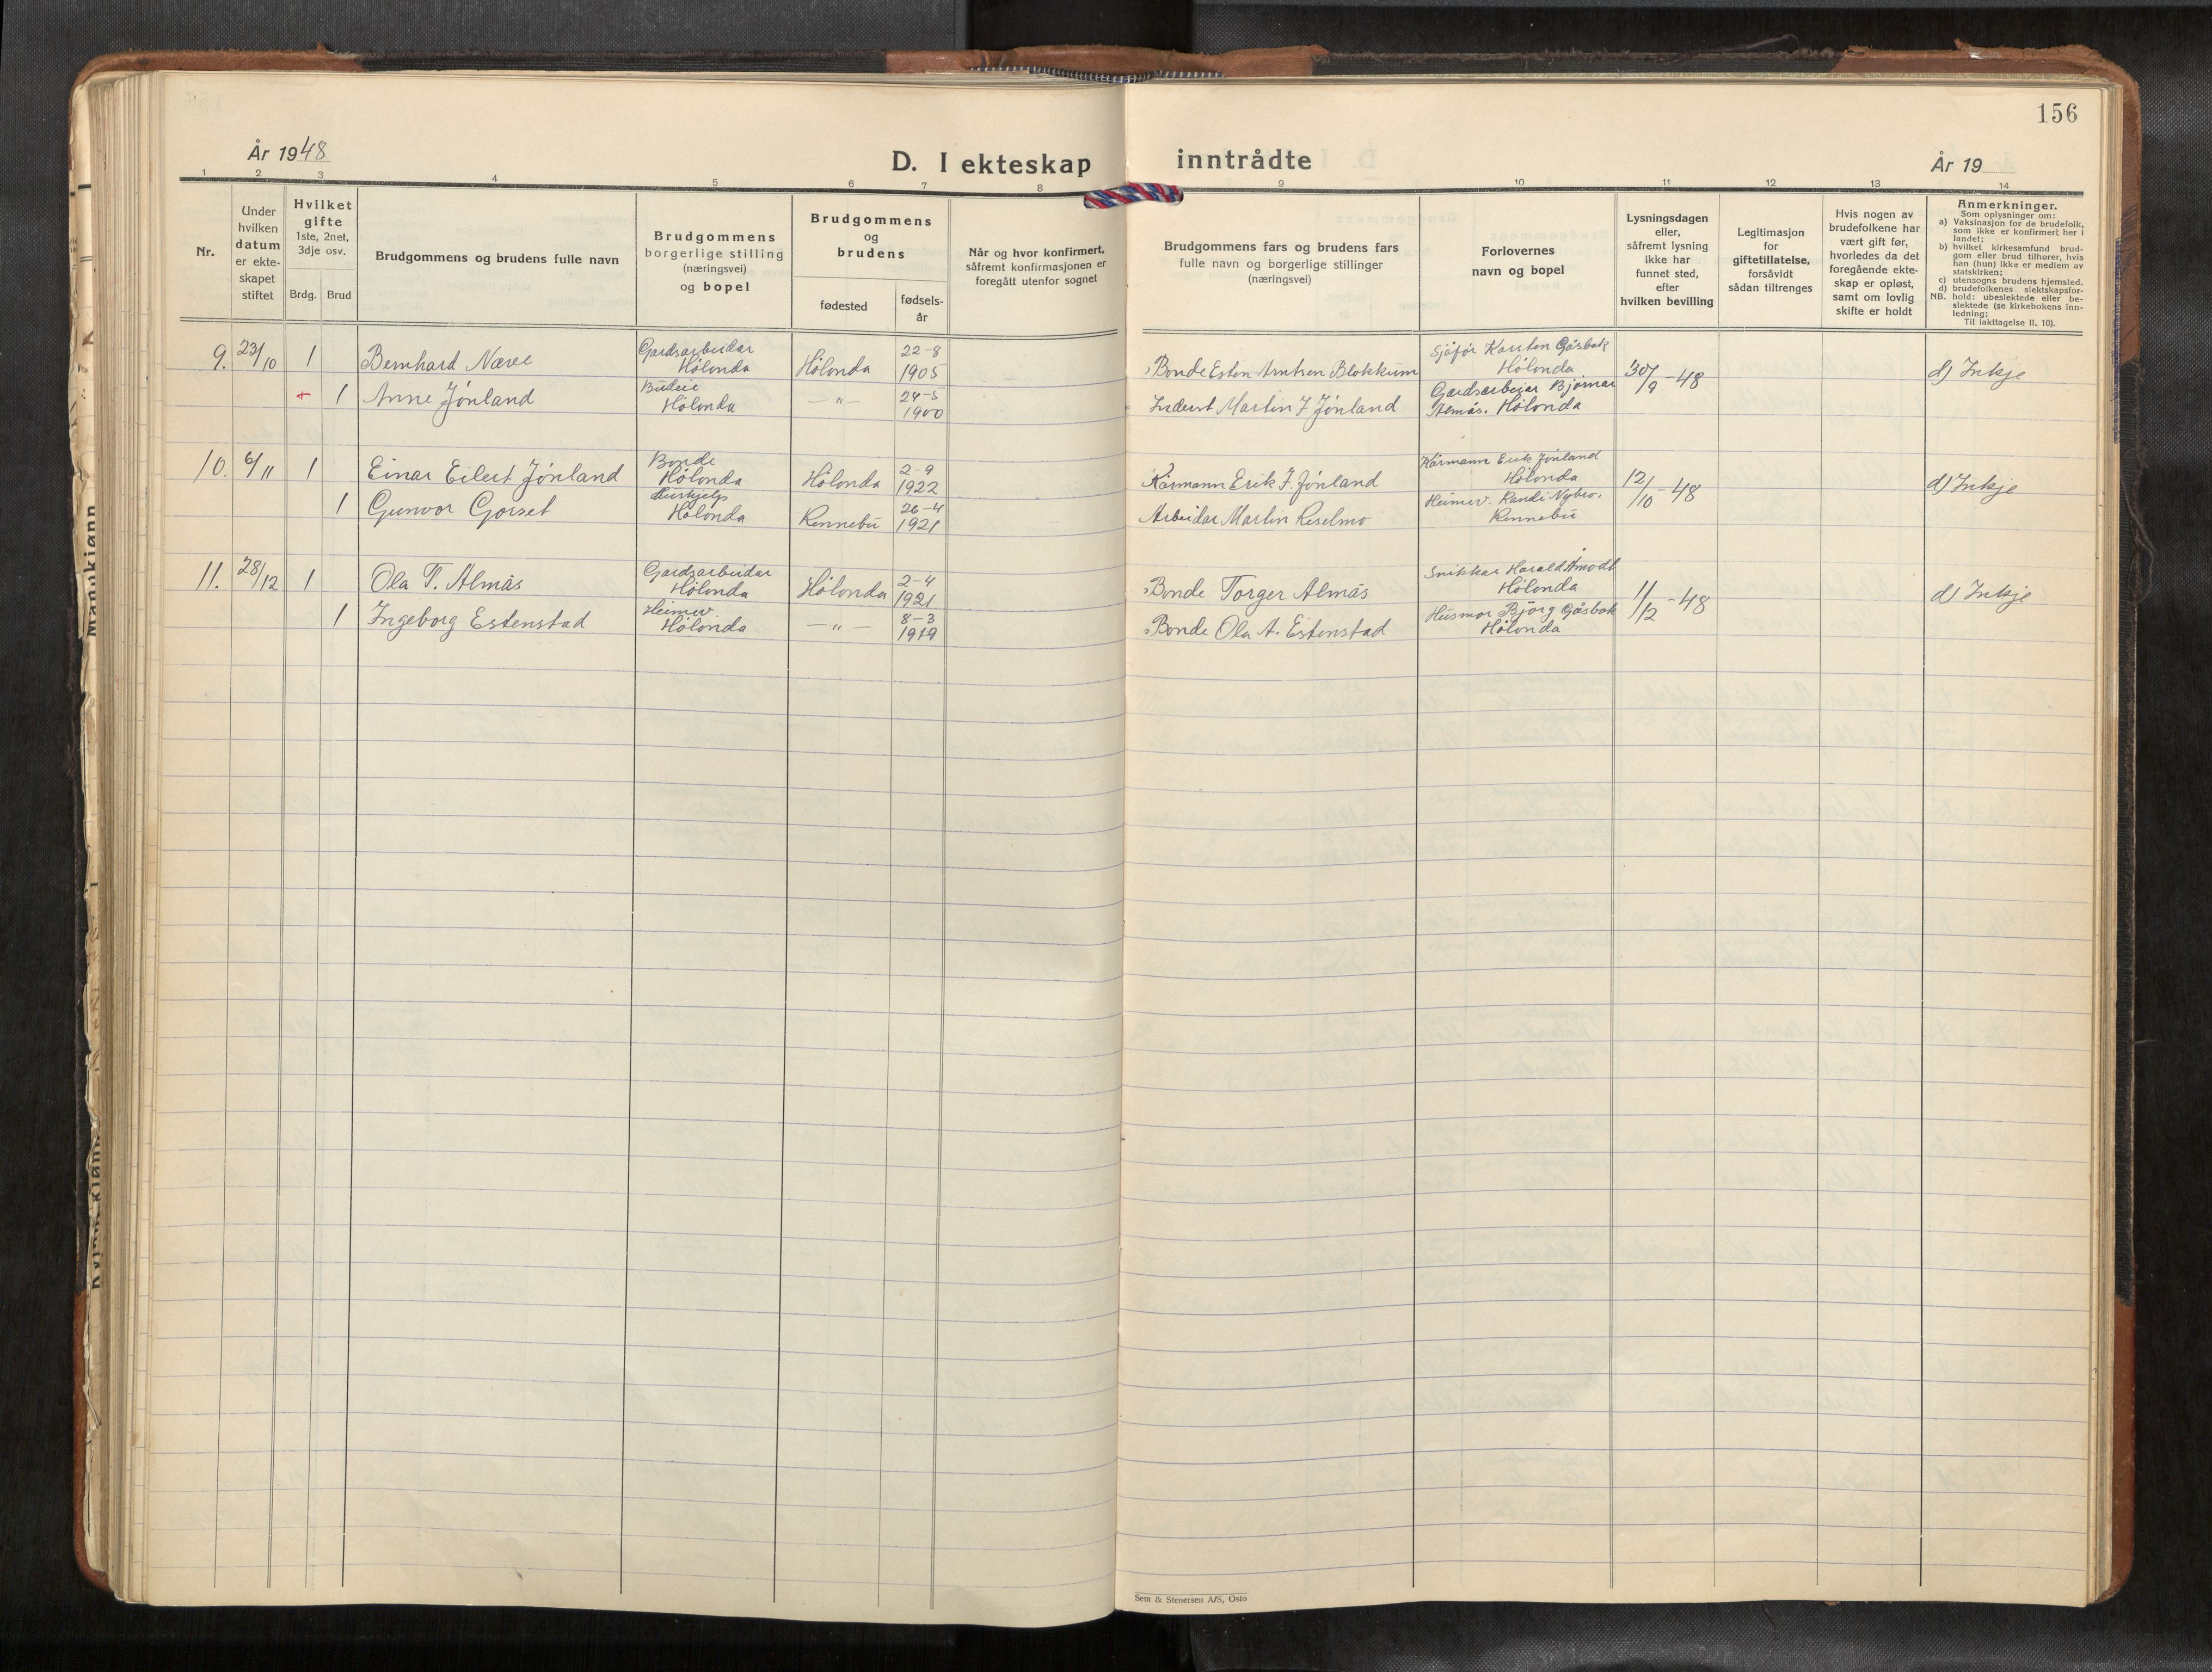 156
År 1948
D. I ekteskap inntrådte
År 19
1 2 3 4 5 6 7 8 9 10 11 12 13 14
Nr.
Under
hvilken
datum
er ekte-
skapet
stiftet
Hvilket
gifte
1ste, 2net,
3dje osv.
Brdg. Brud
Brudgommens og brudens fulle navn
Brudgommens
borgerlige stilling
(næringsvei)
og bopel
Brudgommens
og
brudens
fødested
fødsels-
år
Når og hvor konfirmert,
såfremt konfirmasjonen er
foregått utenfor sognet
Brudgommens fars og brudens fars
fulle navn og borgerlige stillinger
(næringsvei)
Forlovernes
navn og bopel
Lysningsdagen
eller,
såfremt lysning
ikke har
funnet sted,
efter
hvilken bevilling
Legitimasjon
for
giftetillatelse,
forsåvidt
sådan tiltrenges
Hvis nogen av
brudefolkene har
vært gift før,
hvorledes da det
foregående ekte-
skap er opløst,
samt om lovlig
skifte er holdt
Anmerkninger.
Som oplysninger om:
a) Vaksinasjon for de brudefolk,
som ikke er konfirmert her i
landet;
b) hvilket kirkesamfund brud-
gom eller brud tilhører, hvis
han (hun) ikke er medlem av
statskirken;
c) utensogns brudens hjemsted.
d) brudefolkenes slektskapsfor-
NB. hold: ubeslektede eller be-
slektede (se kirkebokens inn-
ledning;
Til iakttagelse II. 10).
9. 23/10 1 Bernhard Næve Gardsarbeidar Hølonda Hølonda 22-8 1905 Bonde Esten Arntsen Blokkum Sjåfør Karsten Gåsbak Hølonda 30/9-48 d) Inkje
+ 1 Anne Jønland Budeie Hølonda —"— 24-5 1900 Inderst Martin J Jønland Gardsarbeiar Bjørnar Almås. Hølonda
10. 6/11 1 Einar Eilert Jønland Bonde Hølonda Hølonda 2-9 1922 Kårmann Erik J. Jønland Kårmann Erik Jønland Hølonda 12/10-48 d) Inkje
1 Gunvor Gorset Hølonda Rennebu 26-4 1921 Arbeidar Martin Reselmo Heimev. Randi Nybro. Rennebu
11. 28/12 1 Ola T. Almås Gardsarbeidar Hølonda Hølonda 2-4 1921 Bonde Torger Almås Snikkar Harald Åmodt Hølonda 11/12-48 d) Inkje
1 Ingeborg Estenstad Heimev. Hølonda —"— 8-3 1919 Bonde Ola A. Estenstad Husmor Bjørg Gåsbak Hølonda
Sem & Stenersen A/S, Oslo
Mannkjønn
Kvinnekjønn